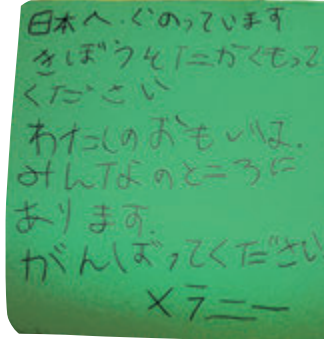 日本へ.ぐのっています
きぼうそたたがくもって
ください
わたしのおもいは.
みんなのところに
あります.
がんばってください
メラニー